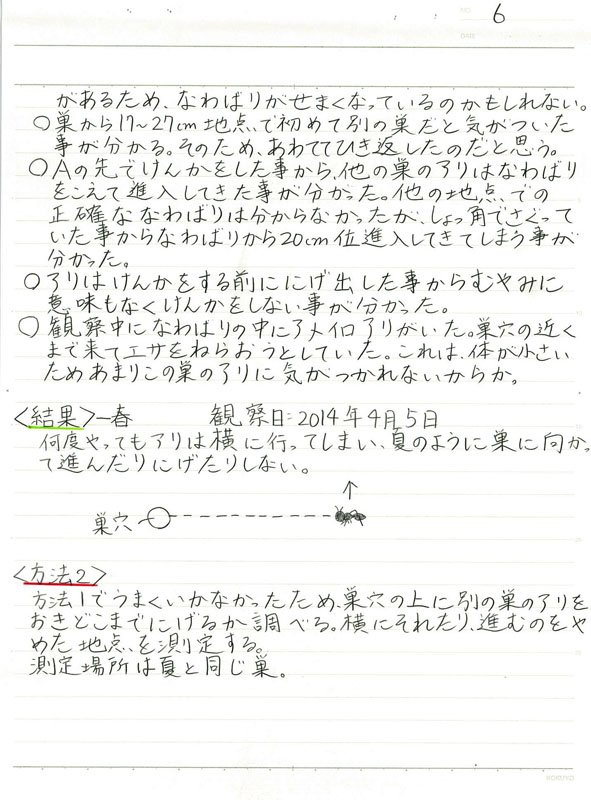 6
があるため、なわばりがせまくなっているのかもしれない。
○巣から17~27cm地点で初めて別の巣だと気がついた
事が分かる。そのため、あわててひき返したのだと思う。
○Aの先でけんかをした事から、他の巣のアリはなわばり
をこえて進入してきた事が分かった。他の地点での
正確ななわばりは分からなかったが、しょっ角でさぐって
いた事からなわばりから20cm位進入してきてしまう事が
分かった。
○アリはけんかをする前ににげ出した事からむやみに
意味もなくけんかをしない事が分かった。
○観察中になわばりの中にアメイロアリがいた。巣穴の近く
まで来てエサをねらおうとしていた。これは、体が小さい
ためあまりこの巣のアリに気がつかれないからか。
<結果>-春 観察日:2014年4月5日
何度やってもアリは横に行ってしまい、夏のように巣に向かっ
て進んだりにげたりしない。
巣穴
<方法2>
方法1でうまくいかなかったため、巣穴の上に別の巣のアリを
おきどこまでにげるか調べる。横にそれたり、進むのをや
めた地点を測定する。
測定場所は夏と同じ巣。
KOKUYO